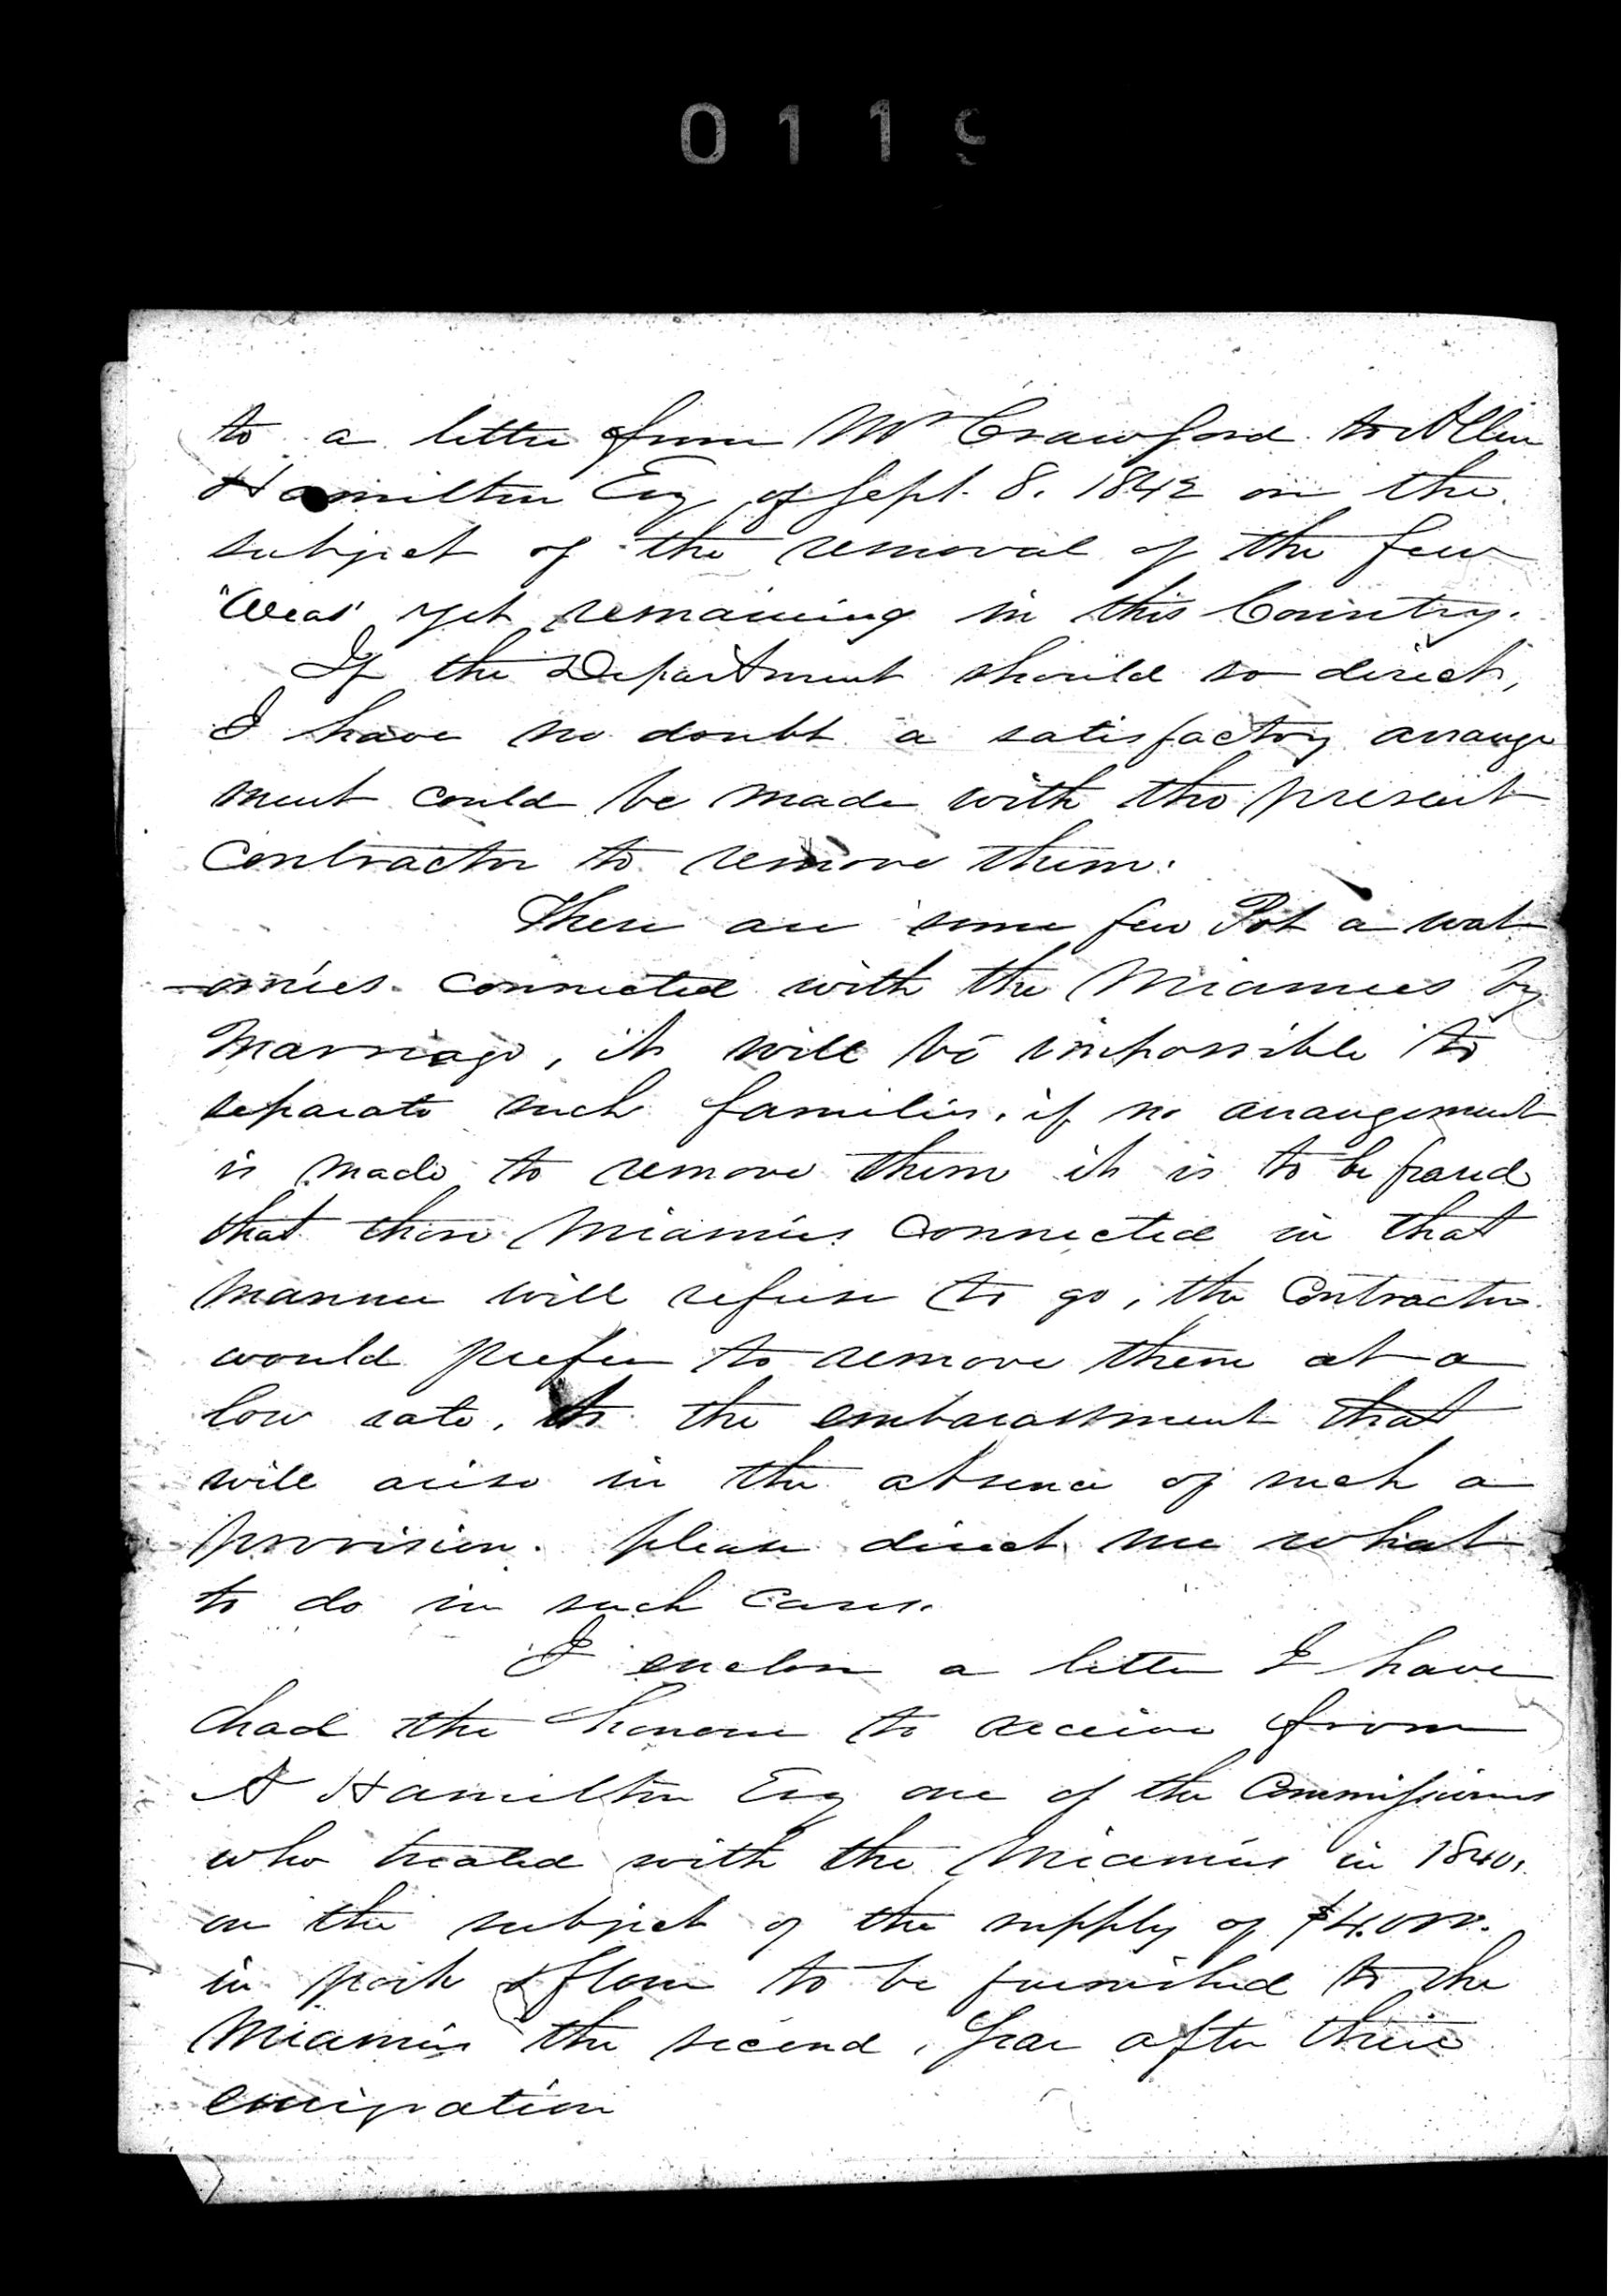 0119
to a letter from Mr Crawford to Allen
Hamilton Esq of Sept. 8. 1842 on the
subject of the removal of the few
"Weas" yet remaining in this Country.
If the Department should so direct,
I have no doubt a satisfactory arrange
ment could be made with the present
Contractor to remove them.
There are some few Pot a wat
-omies connected with the Miamies by
Marriage, it will be impossible to
separate such families. if no arrangement
is made to remove them it is to be feared
that those Miamies connected in that
manner will refuse to go, the Contractor
would prefer to remove them at a
low rate, to the embarassment that
will arise in the absence of such a
provision. please direct me what
to do in such cases.
I enclose a letter I have
had the honour to receive from
A Hamilton Esq one of the Commissioners
who treated with the Miamies in 1840.
on the subject of the supply of $4.000.
in pork & flour to be furnished to the
Miamies the second year after their
emigration